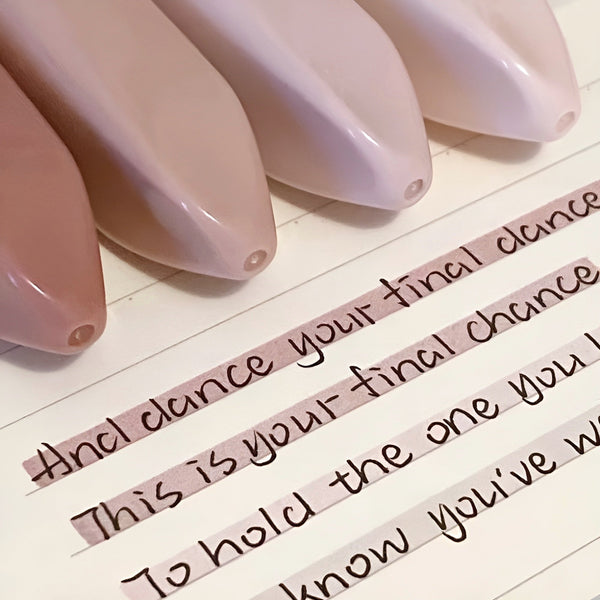 And dance your final dance
This is your final chance
To hold the one you
know you've